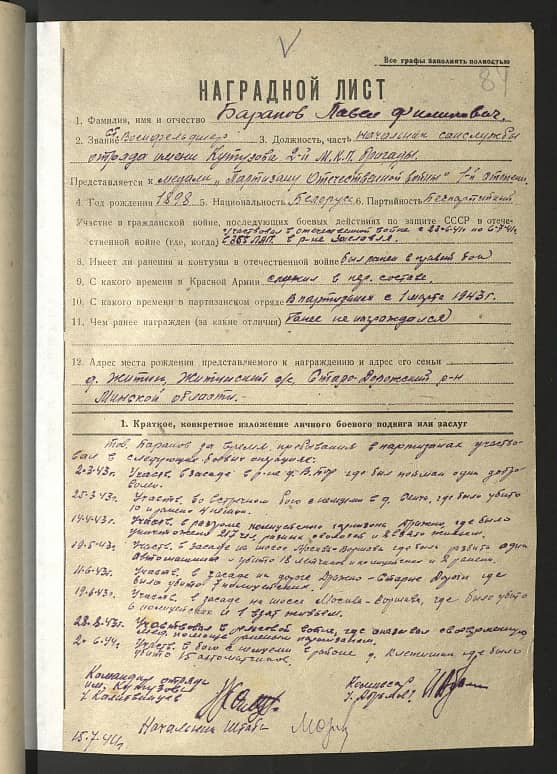 Все графы заполнять полностью
84
НАГРАДНОЙ ЛИСТ
1. Фамилия, имя и отчество Баранов Павел Филипович.
2. Звание Ст. Военфельдшер 3. Должность, часть Начальник санслужбы
отряда имени Кутузова 2-й М.К.П. бригады.
Представляется к медали „Партизану Отечественной войны" 1-й степени
4. Год рождения 1898 5. Национальность Белорус 6. Партийность Беспартийный
Участие в гражданской войне, последующих боевых действиях по защите СССР в отече-
ственной войне (где, когда) участвовал в отечественной войне с 23-6-41 по 6-7-41г.
в р-не Заславля.
8. Имеет ли ранения и контузии в отечественной войне был ранен в правый бок
9. С какого времени в Красной Армии служил в пер. составе.
10. С какого времени в партизанском отряде В партизанах с 1 марта 1943 г.
11. Чем ранее награжден (за какие отличия) Ранее не награждался
12. Адрес места рождения представляемого к награждению и адрес его семьи
д. Житин, Житинский с/с, Старо-Дорожский р-н
Минской области.-
1. Краткое, конкретное изложение личного боевого подвига или заслуг
Тов. Баранов за время пребывания в партизанах участво-
вал в следующих боевых операциях:
2-3-43г. Участв. в засаде в р-не где был пойман один добро-
волец.
25-3-43г. Участв. во встречном бою с немцами в д. где было убито
10 и ранено 4 немца.
14-4-43г. Участв. в разгроме полицейского гарнизона где было
уничтожено 217 чел. разных и взято живьем.
19-5-43г. Участв. в засаде на шоссе Москва-Варшава где была разбита одна
автомашина и убито 18 и полицейских и 2 ранено.
11-6-43г. Участв. в засаде на дороге - Старые Дороги где
было убито 7 полицейских.
19-6-43г. Участв. в засаде на шоссе Москва-Варшава, где было убито
6 полицейских и 1 взят живьем.
28-8-43г. Участвовал в рельсовой войне, где оказывал своевременную
мед. помощь раненым партизанам.
2-6-44г. Участв. в бою с немцами в районе д. где было
убито 15 автоматчиков.
Командир отряда
им. Кутузова
Комиссар
Начальник Штаба
15.7-44г.